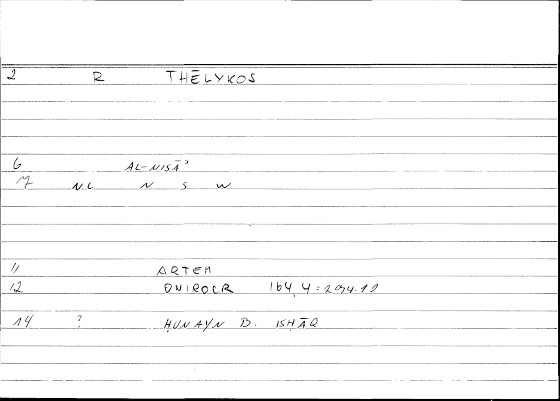 2 R THĒLYKOS
6 AL-NISĀʾ
7 NL N S W
11 ARTEM
12 ONIROCR 164,4 = 294.12
14 ? ḤUNAYN B. ISḤĀQ